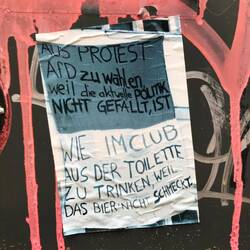 AUS PROTEST
AfD zu wählen,
weil die aktuelle POLITIK
NICHT GEFÄLLT, IST
WIE IM CLUB
AUS DER TOILETTE
ZU TRINKEN, WEIL
DAS BIER NICHT SCHMECKT.